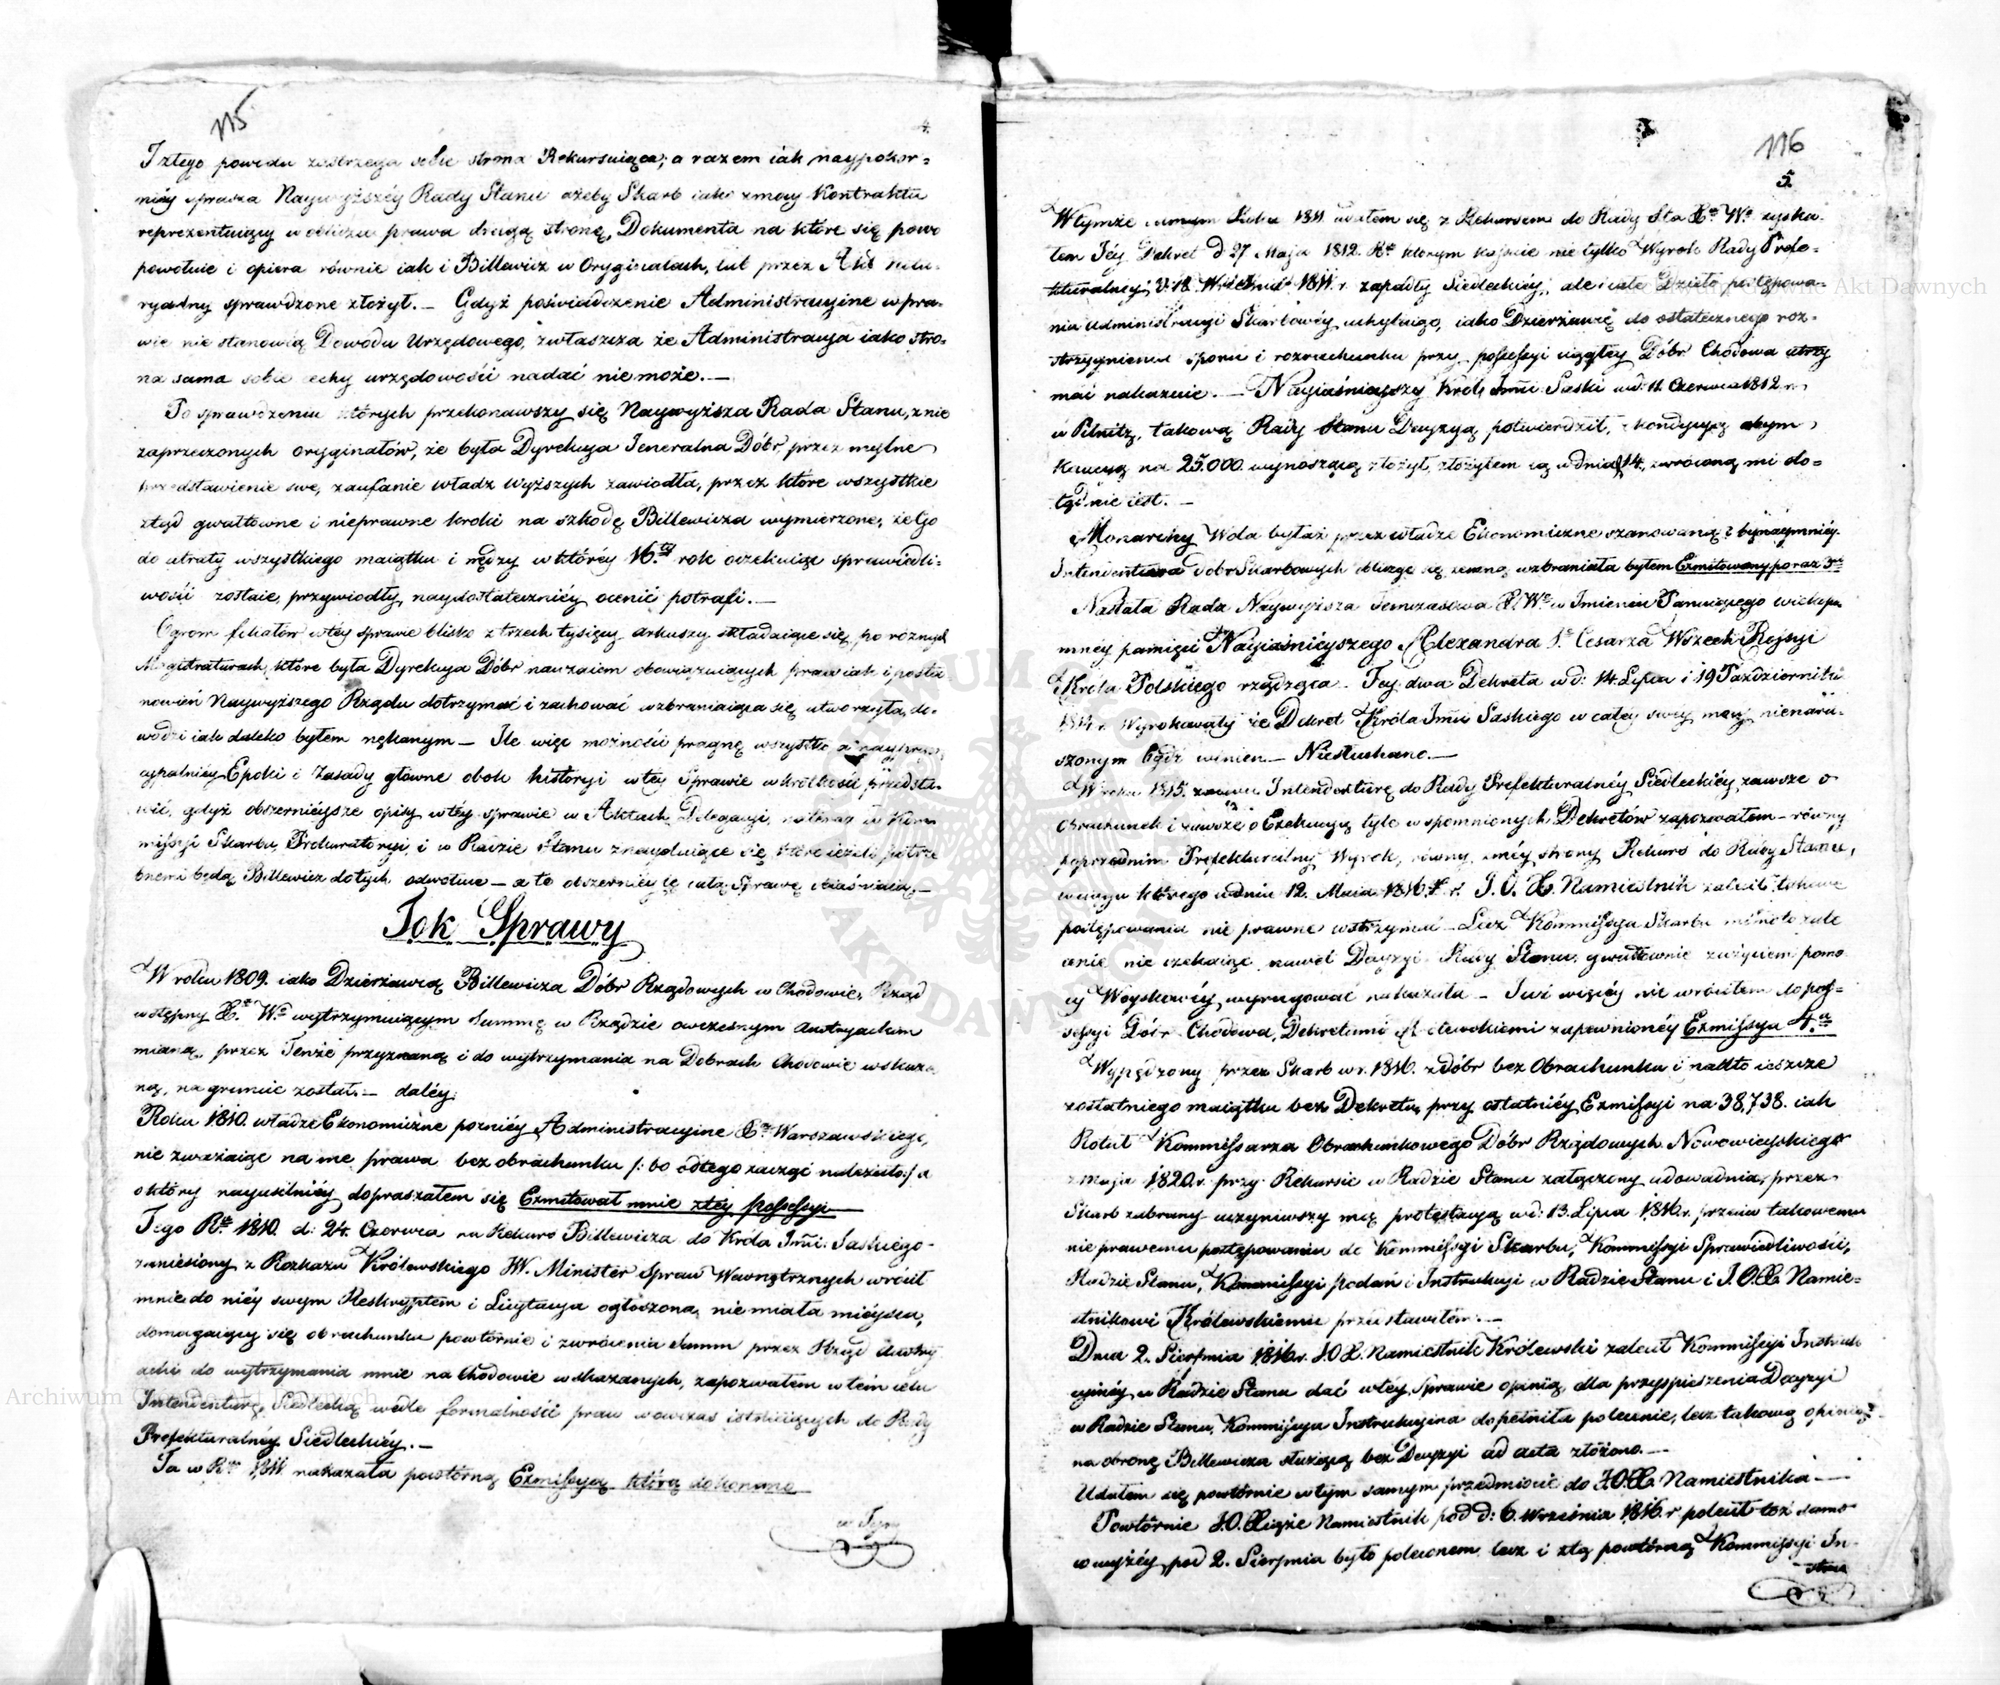 115
4.
Iztego powodu zastrzega sobie strona Rekursuiąca; a razem iak naypokor-
niéy uprasza Naywyższéy Rady Stanu ażeby Skarb iako z mocy Kontraktu
reprezentuiący w obliczu prawa drugą stronę, Dokumenta na które się powo
powołuie i opiera równie iak i Billewicz w Oryginałach, lub przez Akt
sprawdzone złożył. — Gdyż poświadczenie Administracyine w pra-
wie nie stanowią Dowodu Urzędowego, zwłaszcza że Administracya iako stro-
na sama sobie cechy urzędowości nadać nie może. —
Po sprawdzeniu których przekonawszy się Naywyższa Rada Stanu, z nie
zaprzeczonych oryginałów, że była Dyrekcya Jeneralna Dóbr, przez mylne
przedstawienie swe, zaufanie Władz Wyższych zawiodła, przez które wszystkie
ztąd gwałtowne i nieprawne kroki na szkodę Billewicza wymierzone, że Go
do utraty wszystkiego maiątku i nędzy w któréy 16.ty rok oczekuiąc sprawiedli-
wości zostaie, przywiodły, naydostateczniéy ocenić potrafi. —
Ogrom w téy sprawie blisko z trzech tysięcy arkuszy składaiące się, po róznych
Magistraturach, które była Dyrekcya Dóbr nawzaiem obowiązuiących praw iak i posta
nowień Naywyższego Rządu dotrzymać i zachować wzbraniaiąca się utworzyła, do-
wodzi iak daleko byłem nękanym — Ile więc możności pragnę wszystko a
Epoki i Zasady główne obok historyi w téy Sprawie w krótkości przedsta-
wić, gdyż obszernieysze opisy w téy sprawie w Aktach Delegacyi, w Kom
missyi Skarbu, Prokuratoryi, i w Radzie Stanu znayduiące się,
będą Billewicz do tych odwołuie — a to obszerniéy tę całą Sprawę obiaśniaią. —
Tok Sprawy
W roku 1809. iako Dzierżawcą Billewicza Dóbr Rządowych w Chodowie, Rząd
wstępny X.a W.o wytrzymuiącym Summę w Rządzie owczesnym Austryackim
mianą, przez Tenże przyznaną i do wytrzymania na Dobrach Chodowie wskaza
ną, na gruncie został. — daléy.
Roku 1810. władze Ekonomiczne pozniéy Administracyine X.a Warszawskiego,
nie zważaiąc na me prawa bez obrachunku /: bo odtego zacząć należało :/ a
o który nayusilniéy dopraszałem się Exmitował mnie z téy possessyi
Tego R.u 1810. d: 24. Czerwca na Rekurs Billewicza do Króla Jmci: Saskiego
zaniesiony z Rozkazu Królewskiego JW. Minister Spraw Wewnętrznych wrócił
mnie do niéy swym Reskryptem i Licytacya ogłoszona, nie miała mieysca,
domagaiący się obrachunku powtórnie i zwrócenia Summ przez Rząd Austry
acki do wytrzymania mnie na Chodowie wskazanych, zapozwałem w tém celu
Intendenturę Siedlecką wedle formalności praw wowczas istnieiących do Rady
Prefekturalnéy Siedleckiéy. —
Ta w R.u 1811. nakazała powtórną Exmissyą którą dokonano
w Tym
116
5.
W tymże Roku 1811. udałem się z Rekursem do Rady Sta X.a W.o zyska
łem Jéy Dekret d 27 Maja 1812. R.u którym kassuie nietylko Wyrok Rady Prefe-
kturalnéy d: 18. 1811. r. zapadły Siedleckiéy, ale całe Dzieło postępowa-
nia Administracyi Skarbowéy uchylaiąc, iako Dzierżawcę do ostatecznego roz-
strzygnienia sporu i rozrachunku przy possessyi ciągłey Dóbr Chodowa utrzy
mać nakazuie. — Nayiaśnieyszy Król Jmci Saski w d: 11. Czerwca 1812. r.
w Pilnitz, takową Rady Stanu Decyzyą potwierdził, kondycyą abym
Kaucyą na 25.000. wynoszącą złożył, złożyłem ią w dniu 14, zwróconą mi do-
tąd nie iest. —
Monarchy Wola byłaż przez władze Ekonomiczne szanowaną? bynaymniéy.
Intendentura Dóbr Skarbowych oblicze się zemną wzbraniała byłem Exmitowany poraz 3ci
Nastała Rada Naywyższa Temczasowa X. W.o w Imieniu Panuiącego wiekopo
mnéy pamięci Nayiaśnieyszego Alexandra I.o Cesarza Wszech Rossyi
Króla Polskiego rządząca. Jey dwa Dekreta w d: 14. Lipca i 19 Października
1814 r. Wyrokowały że Dekret Króla Jmci Saskiego w całey swey mocy nienaru-
szonym bydź winien — Niesłuchano. —
W roku 1815. znowu Intendenturę do Rady Prefekturalnéy Siedleckiéy, zawsze o
Obrachunek i zawsze o Exekucyą tyle wspomnionych Dekretów zapozwałem — równy
poprzednim Prefekturalny Wyrok, równy z méy strony Rekurs do Rady Stanu,
w ciągu którego w dniu 12. Maia 1816. r. J. O. X. Namiestnik zalecił takowe
postępowania nie prawne wstrzymać — Lecz Kommissya Skarbu mimo to zale
cenie nie czekaiąc nawet Decyzyi Rady Stanu, gwałtownie zużyciem pomo
cy Woyskowéy wyrugować nakazała — Już więcéy nie wróciłem do pos-
sessyi Dóbr Chodowa, Dekretami Królewskiemi zapewnionéy Exmissya 4.ta
Wypędzony przez Skarb w r. 1816. z dóbr bez Obrachunku i nadto ieszcze
zostatniego maiątku bez Dekretu, przy ostatniéy Exmissyi na 38,738. iak
Kommissarza Obrachunkowego Dóbr Rządowych Nowowieyskiego
z Maja 1820. r. przy Rekursie w Radzie Stanu załączony udowadnia, przez
Skarb zabrany uczyniwszy mą protestacyą w d: 13. Lipca 1816. r. przeciw takowemu
nie prawemu postępowaniu do Kommissyi Skarbu, Kommissyi Sprawiedliwości,
Radzie Stanu, Kommissyi podań i Instrukcyi w Radzie Stanu i J.O.X. Namie-
stnikowi Królewskiemu przedstawiłem. —
Dnia 2. Sierpnia 1816 r. J.O.X. Namiestnik Królewski zalecił Kommissyi Instruk
cyinéy w Radzie Stanu dać w téy Sprawie opinią dla przyspieszenia Decyzyi
w Radzie Stanu, Kommissya Instrukcyina dopełniła polecenie, lecz takową opinią
na obronę Billewicza służącą bez Decyzyi ad acta złożono. —
Udałem się powtórnie w tym samym przedmiocie do J.O.X. Namiestnika —
Powtórnie J.O. Xiąże Namiestnik pod d: 6. Września 1816. r polecił toż samo
co wyżéy pod 2. Sierpnia było polecone, lecz i ztą powtórną Kommissyi In-
stru